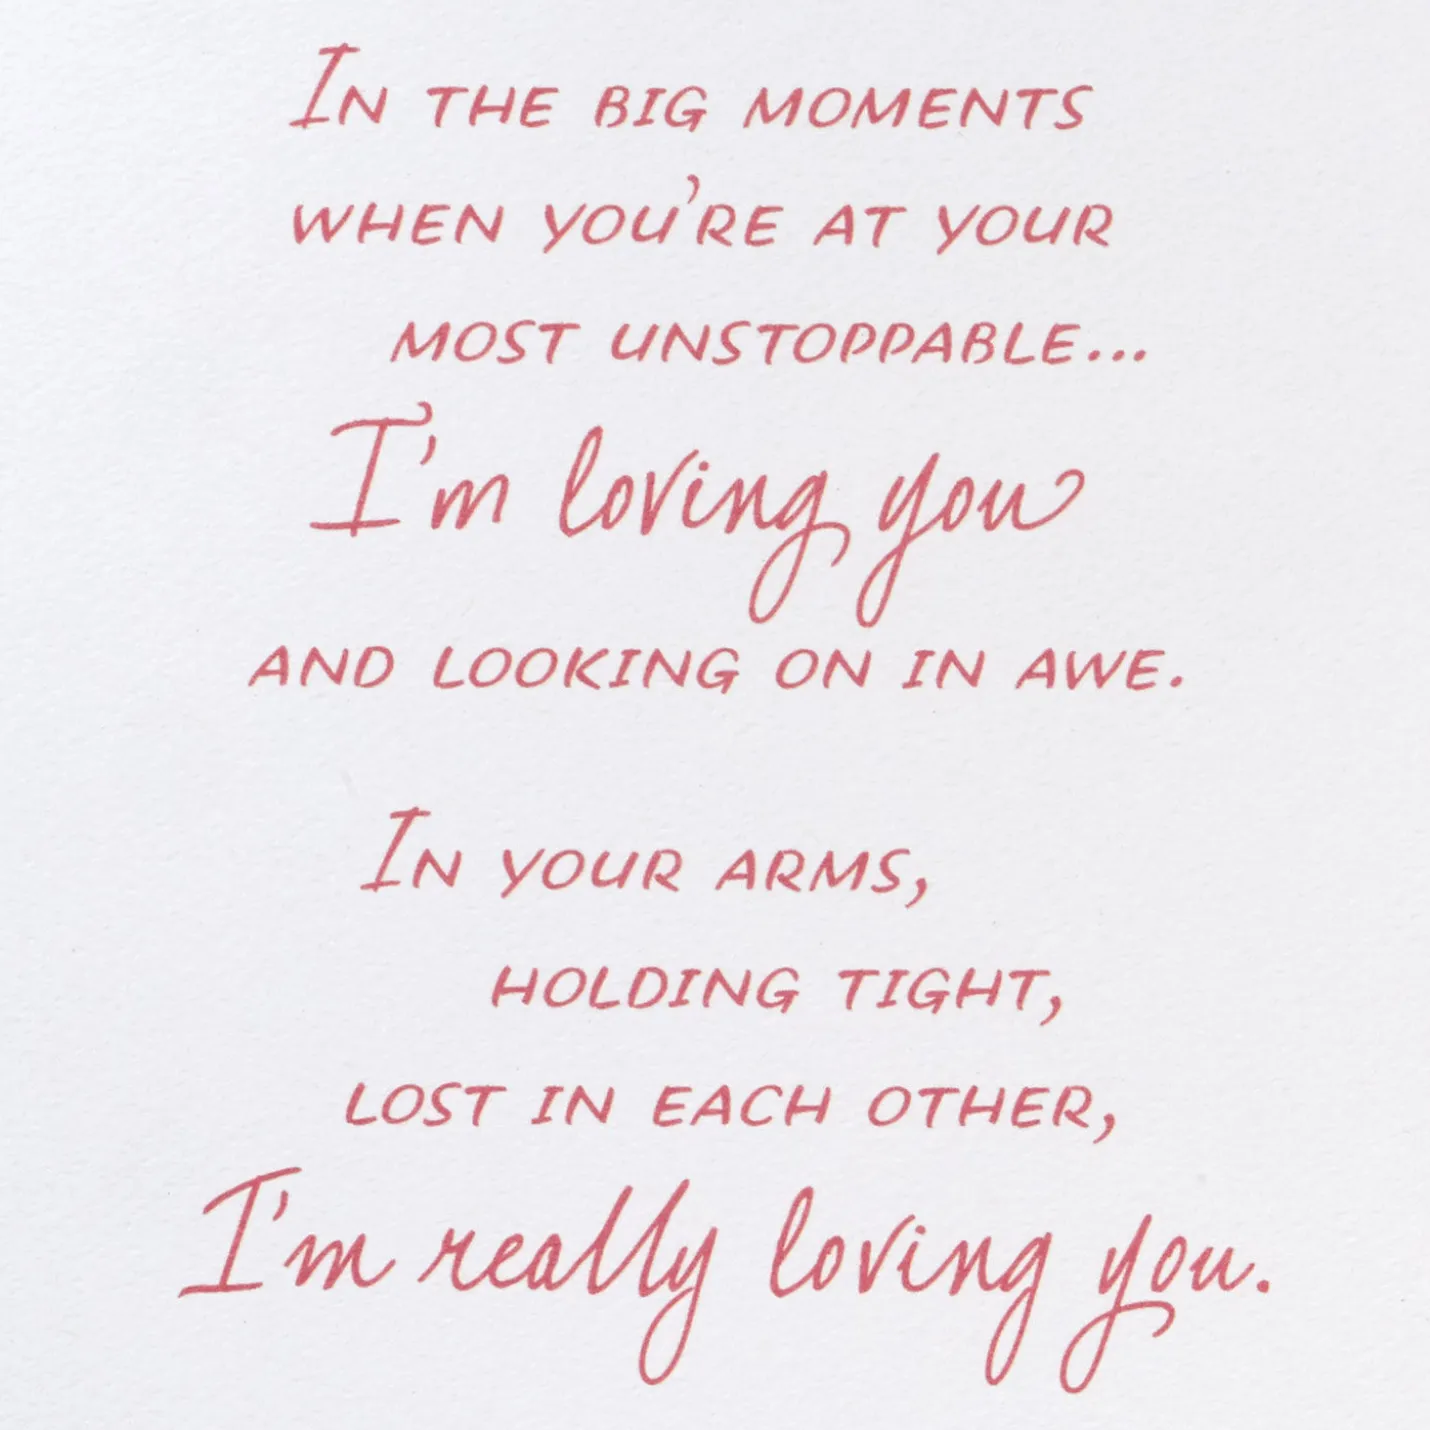 In the big moments
when you're at your
most unstoppable...
I'm loving you
and looking on in awe.
In your arms,
holding tight,
lost in each other,
I'm really loving you.